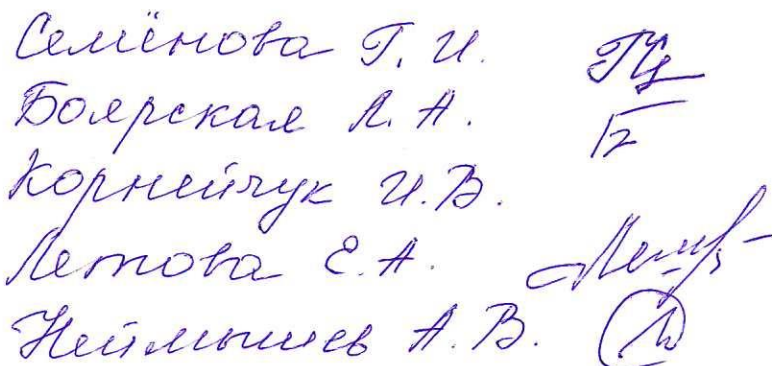 Семёнова Г. И.
Боярская Л. А.
Корнейчук И. В.
Летова Е. А.
Неймышев А. В.